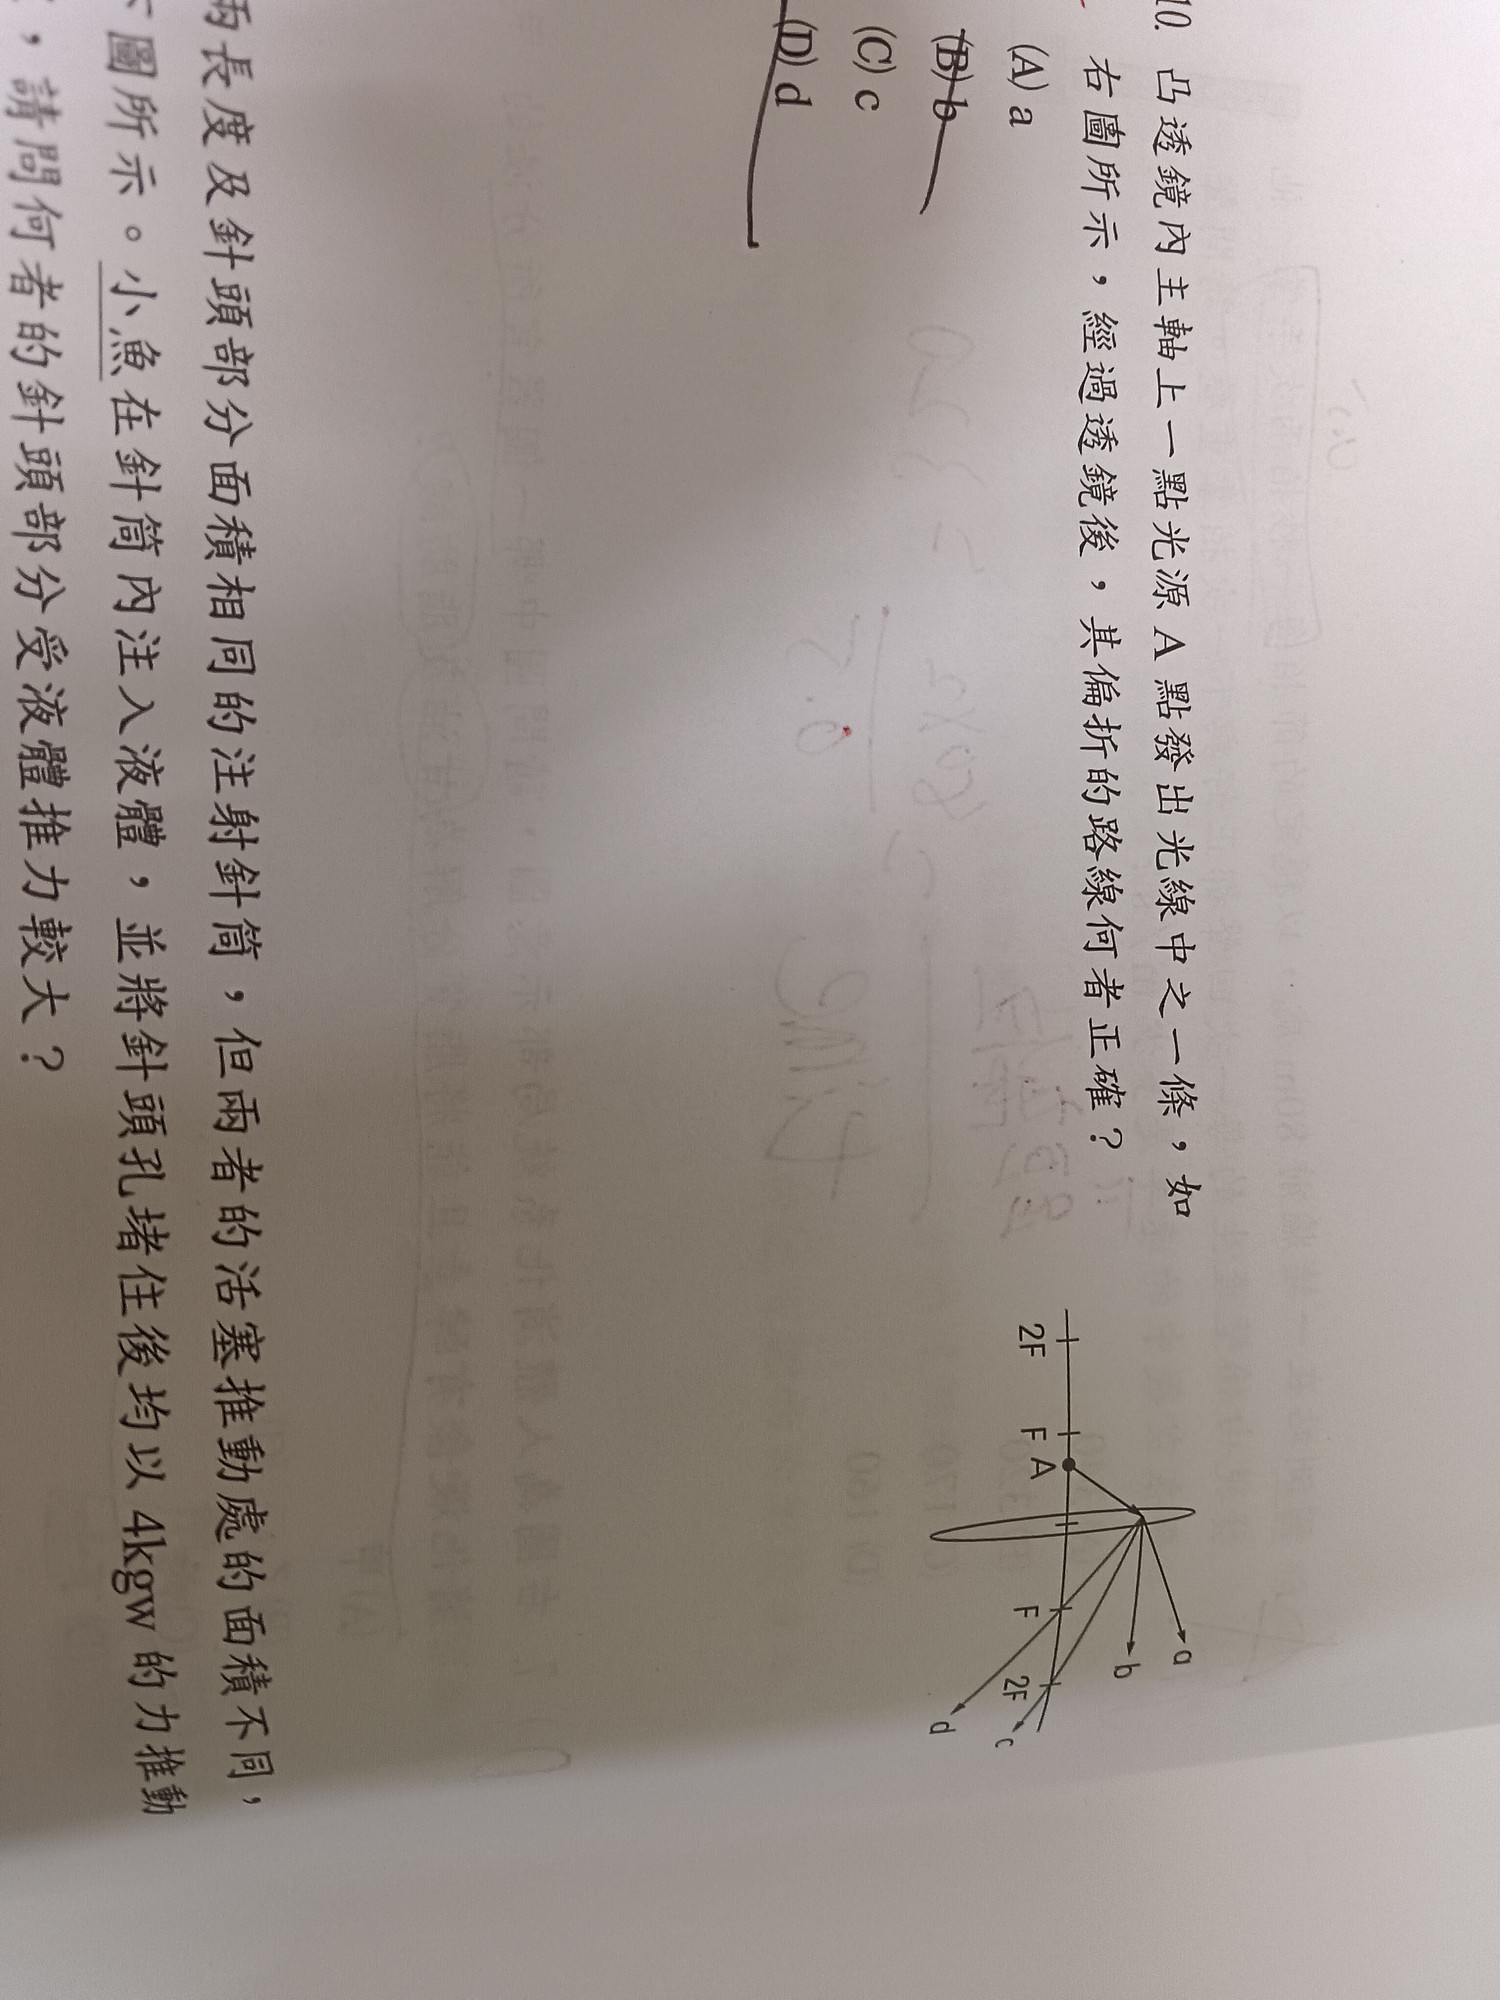 10. 凸透鏡內主軸上一點光源 A 點發出光線中之一條，如
右圖所示，經過透鏡後，其偏折的路線何者正確？
(A) a
(B) b
(C) c
(D) d
2F F A F 2F
a
b
c
d
兩長度及針頭部分面積相同的注射針筒，但兩者的活塞推動處的面積不同，
下圖所示。小魚在針筒內注入液體，並將針頭孔堵住後均以 4kgw 的力推動
，請問何者的針頭部分受液體推力較大？